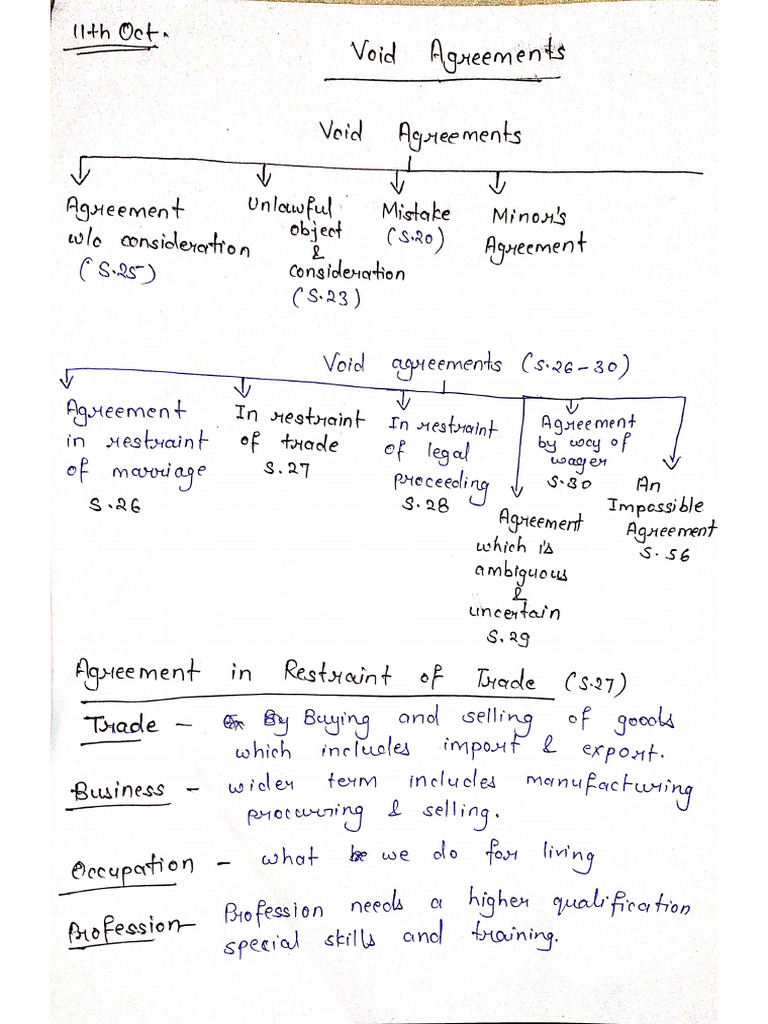 11th Oct.
Void Agreements
Void Agreements
Agreement
w/o consideration
(S.25)
Unlawful
object
&
consideration
(S.23)
Mistake
(S.20)
Minor's
Agreement
Void agreements (S.26-30)
Agreement
in restraint
of marriage
S.26
In restraint
of trade
S.27
In restraint
of legal
proceeding
S.28
Agreement
which is
ambiguous
&
uncertain
S.29
Agreement
by way of
wager
S.30
An
Impossible
Agreement
S.56
Agreement in Restraint of Trade (S.27)
Trade - By Buying and selling of goods
which includes import & export.
Business - wider term includes manufacturing
procurring & selling.
Occupation - what we do for living
Profession - Profession needs a higher qualification
special skills and training.